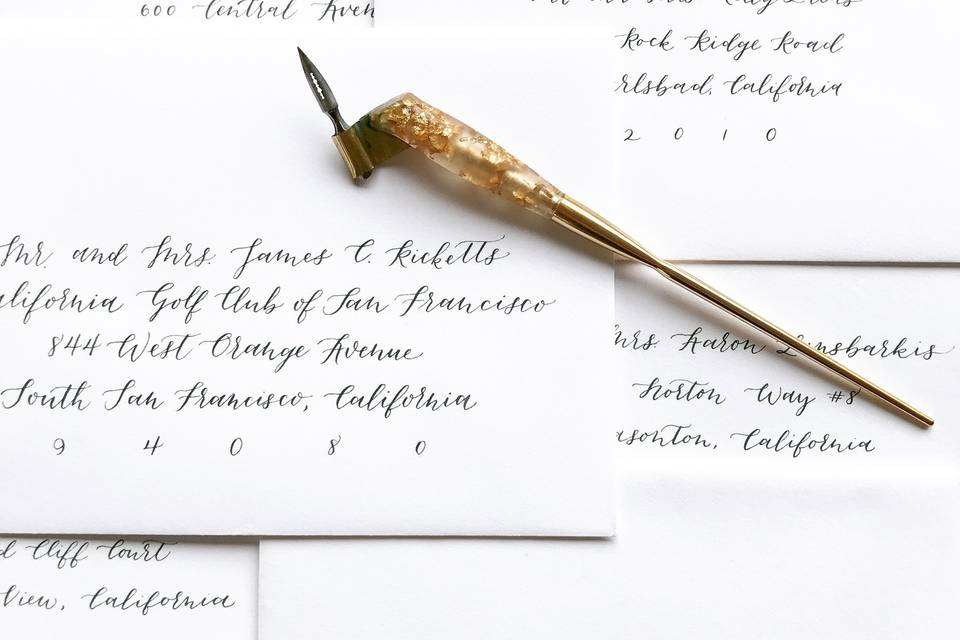 600 Central Aven
Rock Ridge Road
rlsbad, California
2 0 1 0
Mr. and Mrs. James C. Ricketts
alifornia Golf Club of San Francisco
844 West Orange Avenue
South San Francisco, California
9 4 0 8 0
Mrs Aaron
Norton Way #8
asonton, California
d Cliff Court
View, California